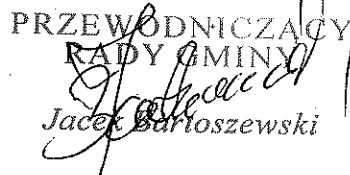 PRZEWODNICZĄCY
RADY GMINY
Jacek Bartoszewski